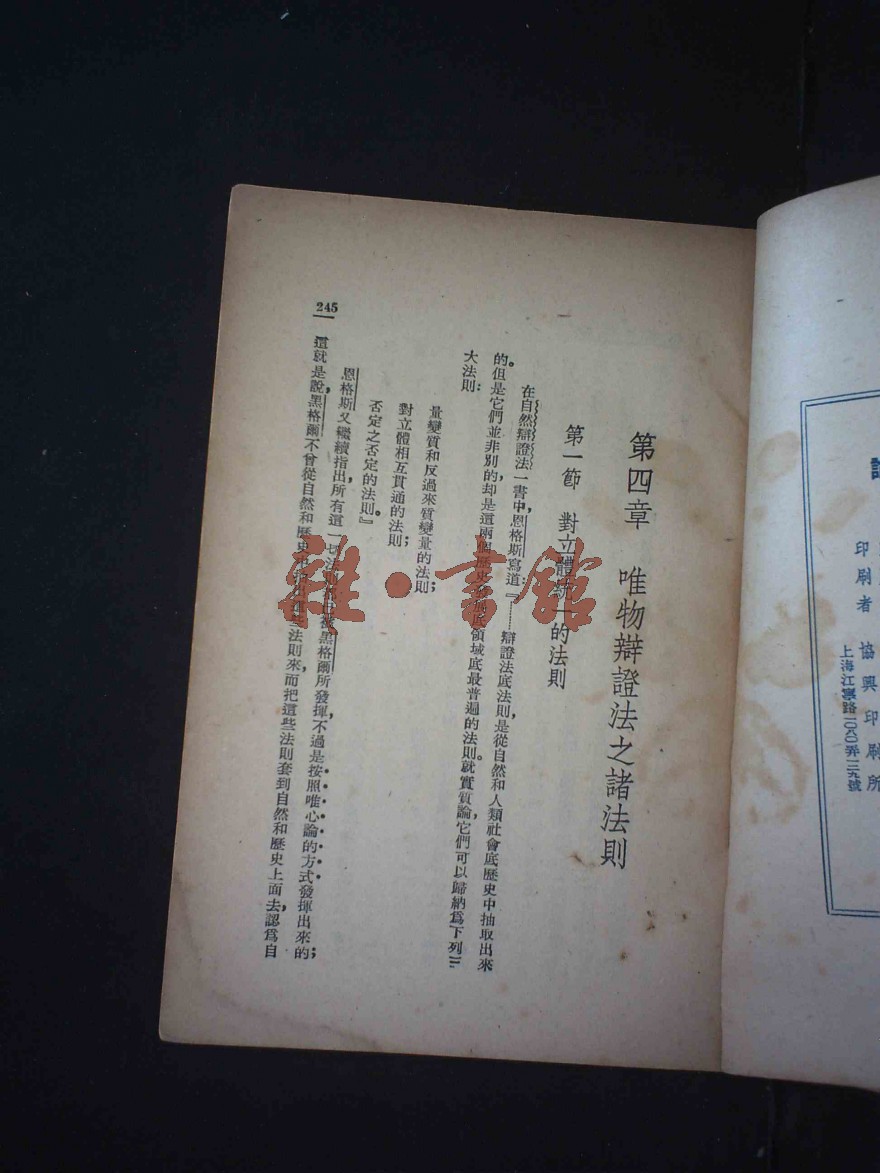 印刷者 協興印刷所
上海江寧路一〇八〇弄一二九號
第四章 唯物辯證法之諸法則
第一節 對立體統一的法則
在自然辯證法一書中,恩格斯寫道:『……辯證法底法則,是從自然和人類社會底歷史中抽取出來
的。但是它們並非別的,却是這兩個歷史發展底領域底最普遍的法則。就實質論,它們可以歸納爲下列三
大法則:
量變質和反過來質變量的法則;
對立體相互貫通的法則;
否定之否定的法則。』
恩格斯又繼續指出,所有這一切法則都已被黑格爾所發揮,不過是按照唯心論的方式發揮出來的;
這就是說,黑格爾不曾從自然和歷史中抽出這些法則來,而把這些法則套到自然和歷史上面去,認爲自
245
雜·書館